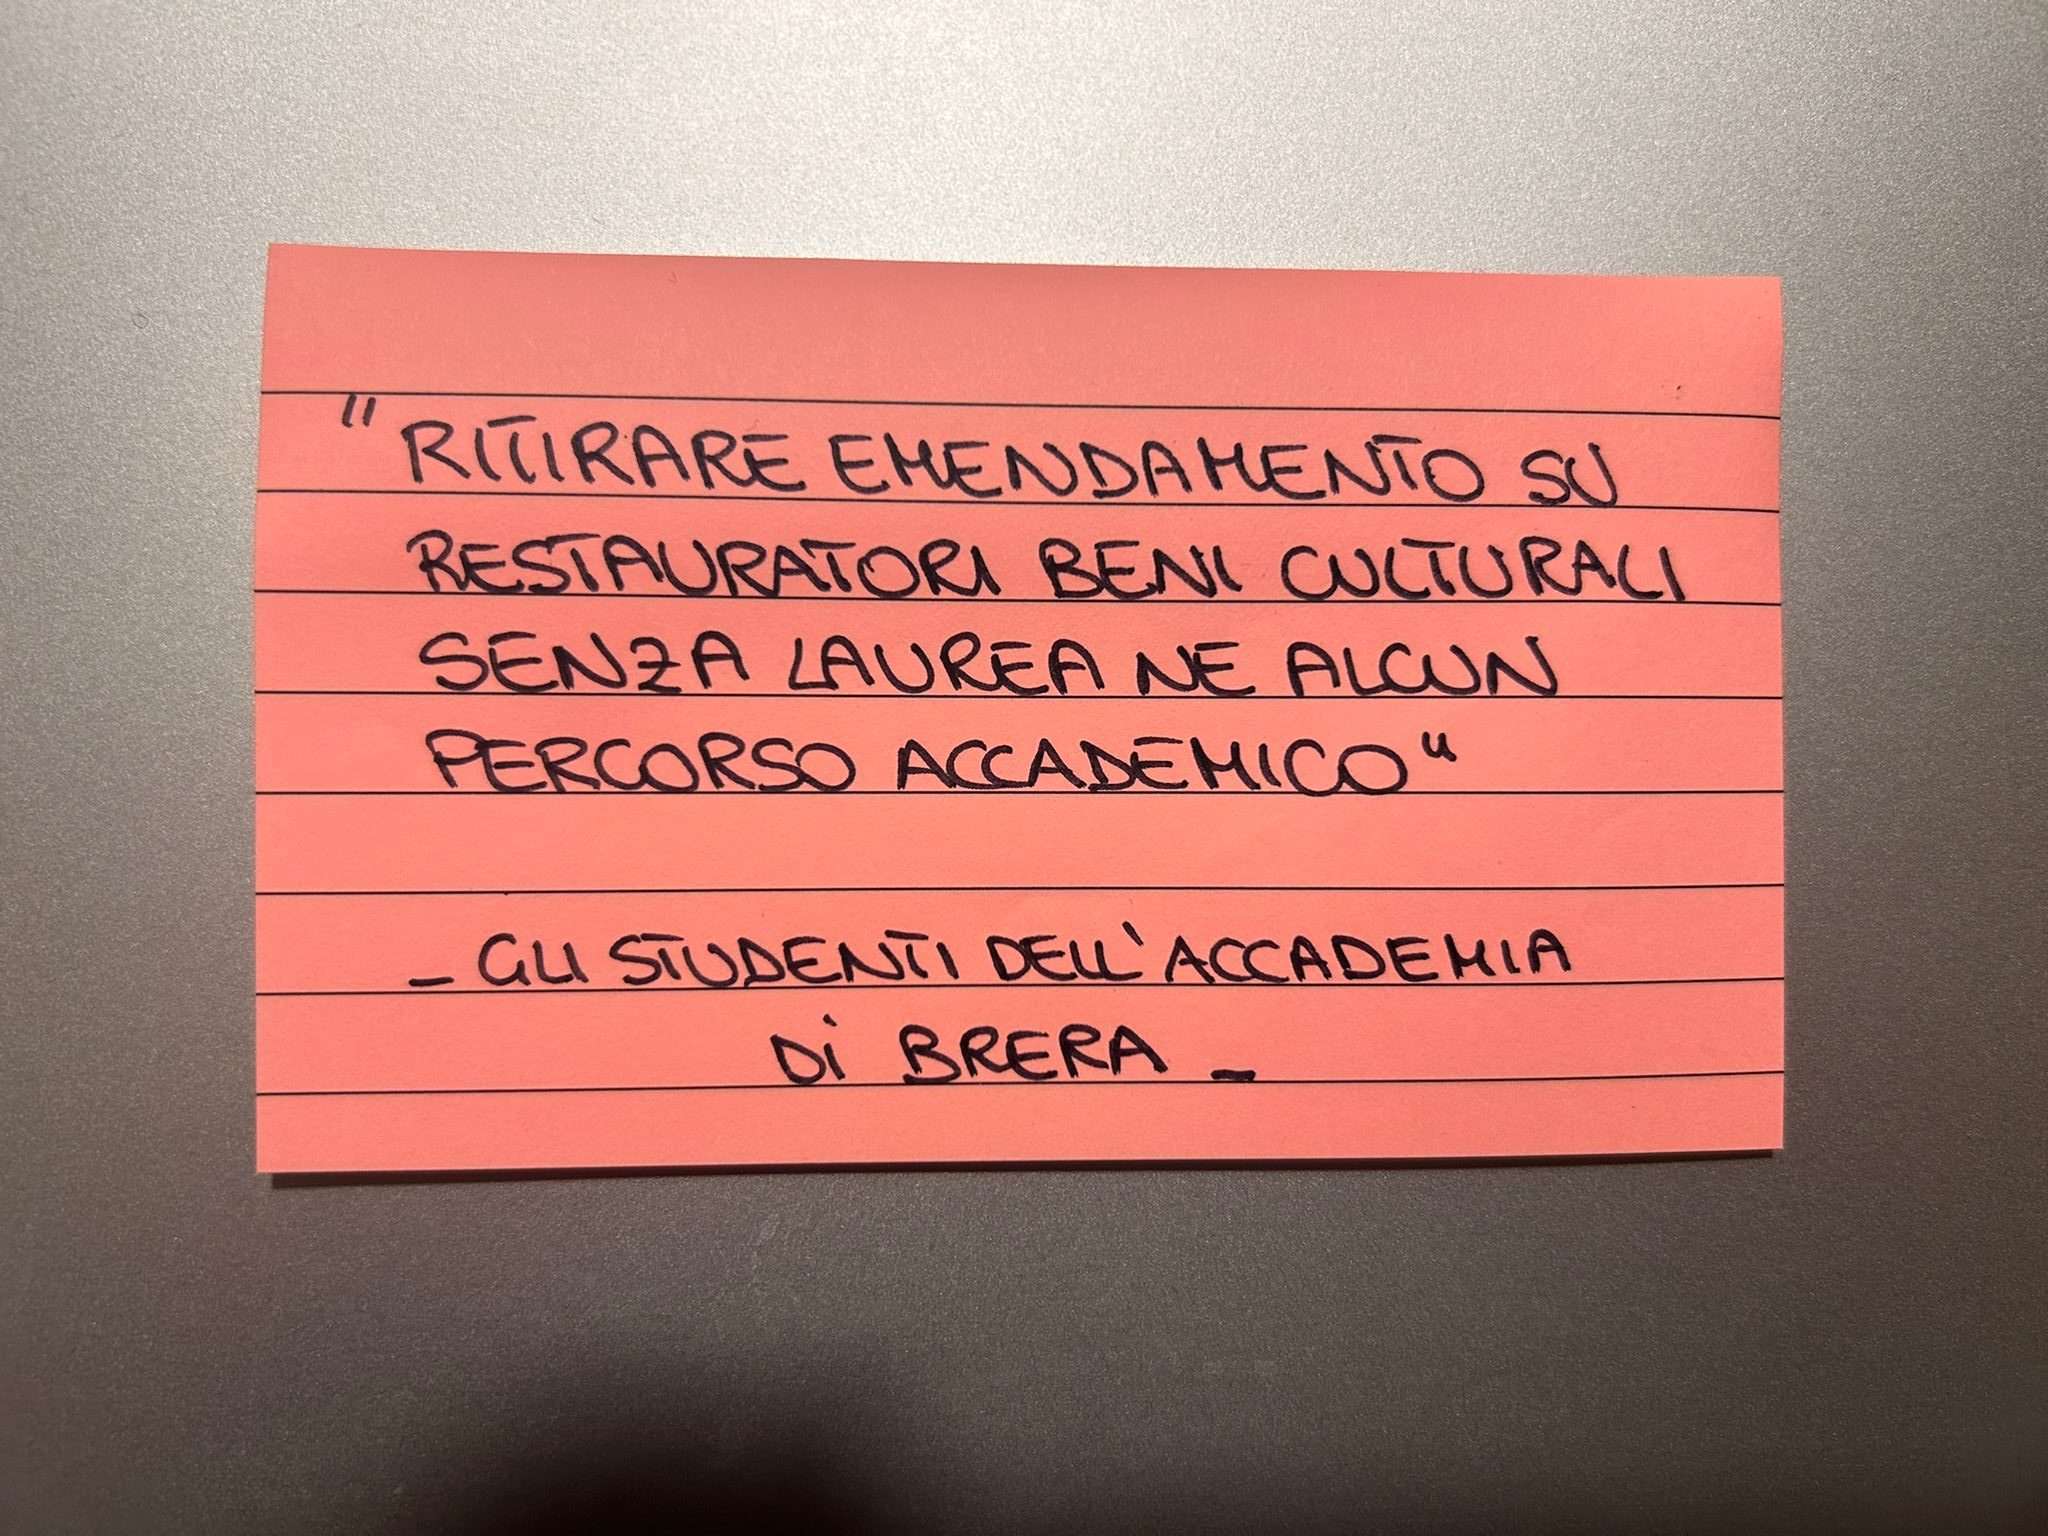 "RITIRARE EMENDAMENTO SU
RESTAURATORI BENI CULTURALI
SENZA LAUREA NE ALCUN
PERCORSO ACCADEMICO"
- GLI STUDENTI DELL'ACCADEMIA
Di BRERA -